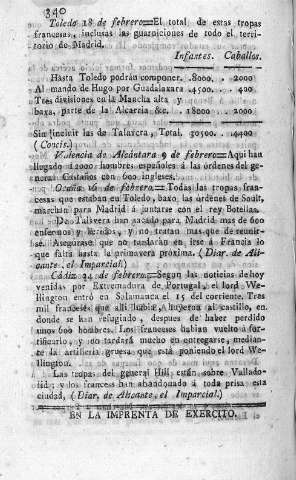 340
Toledo 18 de febrero=El total de estas tropas
francesas, inclusas las guarniciones de todo el terri-
torio de Madrid.
Infantes. Caballos.
Hasta Toledo podrán componer. 8000. . 2000
Al mando de Hugo por Guadalaxara 4500. . 400
Tres divisiones en la Mancha alta y
baxa, parte de la Alcarria &c. . 18000 . . 2000
Sin incluir las de Talavera, Total, 30500. . 4400
(Concis.)
Valencia de Alcántara 9 de febrero=Aqui han
llegado 12000 hombres españoles á las órdenes del ge-
neral Castaños con 600 ingleses.
Ocaña 16 de febrero.=Todas las tropas fran-
cesas que estaban en Toledo, baxo las órdenes de Soult,
marchan para Madrid á juntarse con el rey Botellas.
De Talavera han pasado para Madrid mas de 600
enfermos y heridos, y no tratan mas que de reunir-
se. Asegurase que no tardarán en irse á Francia lo
que falta hasta la primavera próxima. (Diar. de Ali-
cante, el Imparcial.)
Cádiz 24 de febrero.=Segun las noticias de hoy
venidas por Extremadura de Portugal, el lord We-
llington entró en Salamanca el 15 del corriente. Tres
mil franceses que alli habia, huyeron al castillo, en
donde se han refugiado, despues de haber perdido
unos 600 hombres. Los franceses habian vuelto á for-
tificarlo, y no tardará mucho en entregarse, median-
te la artilleria gruesa que está poniendo el lord We-
llington.
Las tropas del general Hill están sobre Vallado-
lid; y los franceses han abandonado á toda prisa esta
ciudad, (Diar. de Alicante, el Imparcial.)
EN LA IMPRENTA DE EXERCITO.